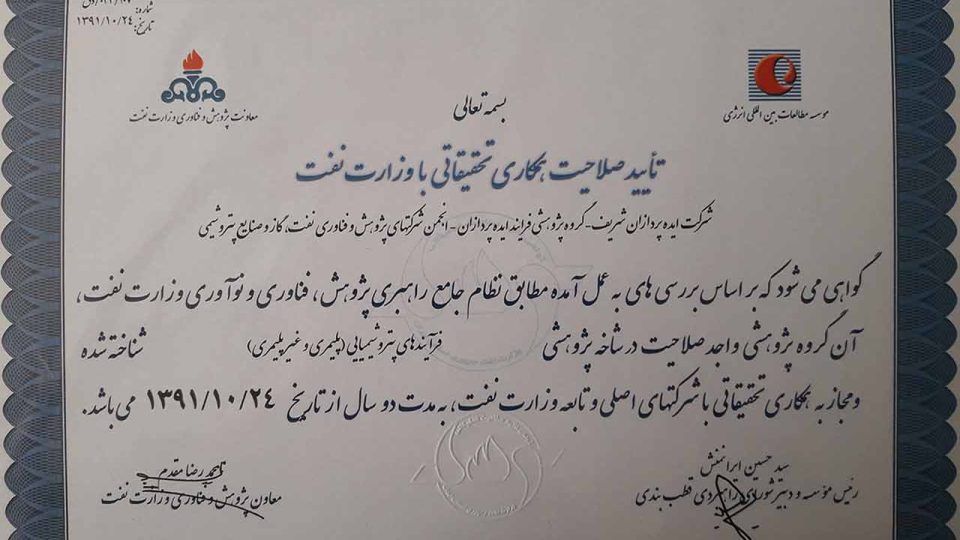 شماره:
تاریخ: ۱۳۹۱/۱۰/۲۴
موسسه مطالعات بین المللی انرژی
معاونت پژوهش و فناوری وزارت نفت
بسمه تعالی
تأیید صلاحیت همکاری تحقیقاتی با وزارت نفت
شرکت ایده پردازان شریف - گروه پژوهشی فرایند ایده پردازان - انجمن شرکتهای پژوهش و فناوری نفت، گاز و صنایع پتروشیمی
گواهی می شود که بر اساس بررسی های به عمل آمده مطابق نظام جامع راهبری پژوهش، فناوری و نوآوری وزارت نفت،
آن گروه پژوهشی واجد صلاحیت در شاخه پژوهشی فرآیندهای پتروشیمیایی (پلیمری و غیرپلیمری) شناخته شده
و مجاز به همکاری تحقیقاتی با شرکتهای اصلی و تابعه وزارت نفت، به مدت دو سال از تاریخ ۱۳۹۱/۱۰/۲۴ می باشد.
سید حسین ایرانمنش
رئیس مؤسسه و دبیر شورای راهبردی قطب بندی
محمدرضا مقدم
معاون پژوهش و فناوری وزارت نفت